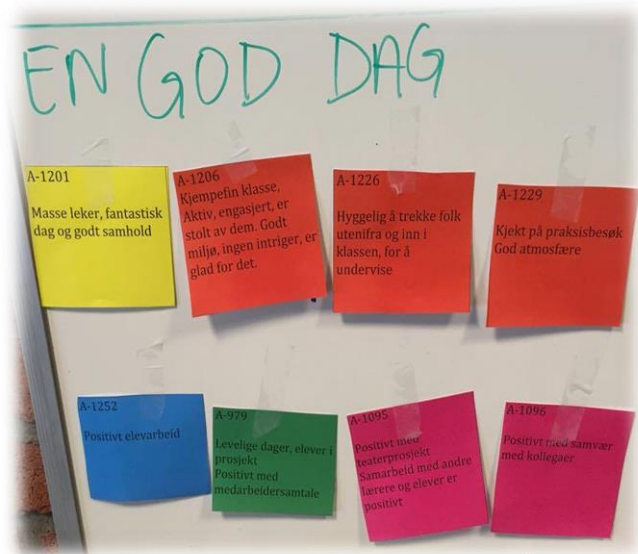 EN GOD DAG
A-1201
Masse leker, fantastisk
dag og godt samhold
A-1206
Kjempefin klasse,
Aktiv, engasjert, er
stolt av dem. Godt
miljø, ingen intriger, er
glad for det.
A-1226
Hyggelig å trekke folk
utenifra og inn i
klassen, for å
undervise
A-1229
Kjekt på praksisbesøk
God atmosfære
A-1252
Positivt elevarbeid
A-979
Levelige dager, elever i
prosjekt
Positivt med
medarbeidersamtale
A-1095
Positivt med
teaterprosjekt
Samarbeid med andre
lærere og elever er
positivt
A-1096
Positivt med samvær
med kollegaer